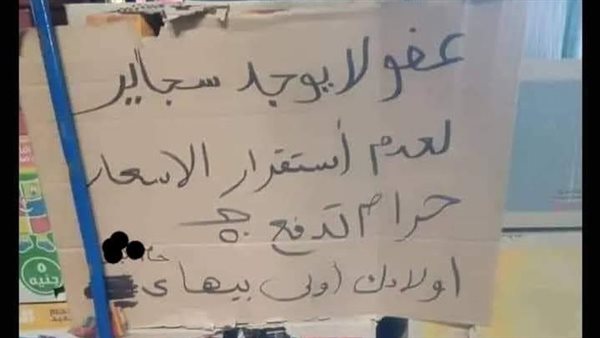 عفو لا يوجد سجاير
لعدم أستقرار الاسعار
حرام تدفع
اولادك أولى بيها
٥
جنيه